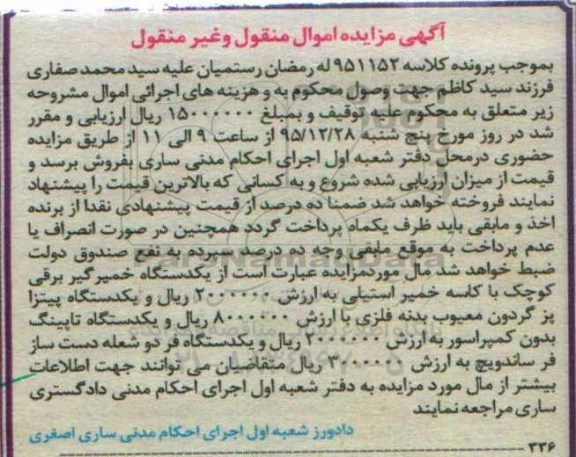 آگهی مزایده اموال منقول وغیر منقول
بموجب پرونده کلاسه ۹۵۱۱۵۲ له رمضان رستمیان علیه سید محمد صفاری
فرزند سید کاظم جهت وصول محکوم به و هزینه های اجرائی اموال مشروحه
زیر متعلق به محکوم علیه توقیف و بمبلغ ۱۵۰۰۰۰۰۰ ریال ارزیابی و مقرر
شد در روز مورخ پنج شنبه ۹۵/۱۲/۲۸ از ساعت ۹ الی ۱۱ از طریق مزایده
حضوری درمحل دفتر شعبه اول اجرای احکام مدنی ساری بفروش برسد و
قیمت از میزان ارزیابی شده شروع و به کسانی که بالاترین قیمت را پیشنهاد
نمایند فروخته خواهد شد ضمنا ده درصد از قیمت پیشنهادی نقدا از برنده
اخذ و مابقی باید ظرف یکماه پرداخت گردد همچنین در صورت انصراف یا
عدم پرداخت به موقع مابقی وجه ده درصد سپرده به نفع صندوق دولت
ضبط خواهد شد مال موردمزایده عبارت است از یکدستگاه خمیرگیر برقی
کوچک با کاسه خمیر استیلی به ارزش ۲۰۰۰۰۰۰ ریال و یکدستگاه پیتزا
پز گردون معیوب بدنه فلزی با ارزش ۸۰۰۰۰۰۰ ریال و یکدستگاه تاپینگ
بدون کمپراسور به ارزش ۲۰۰۰۰۰۰ ریال و یکدستگاه فر دو شعله دست ساز
فر ساندویچ به ارزش ۳۰۰۰۰۰۰ ریال متقاضیان می توانند جهت اطلاعات
بیشتر از مال مورد مزایده به دفتر شعبه اول اجرای احکام مدنی دادگستری
ساری مراجعه نمایند
دادورز شعبه اول اجرای احکام مدنی ساری اصغری
۳۳۶